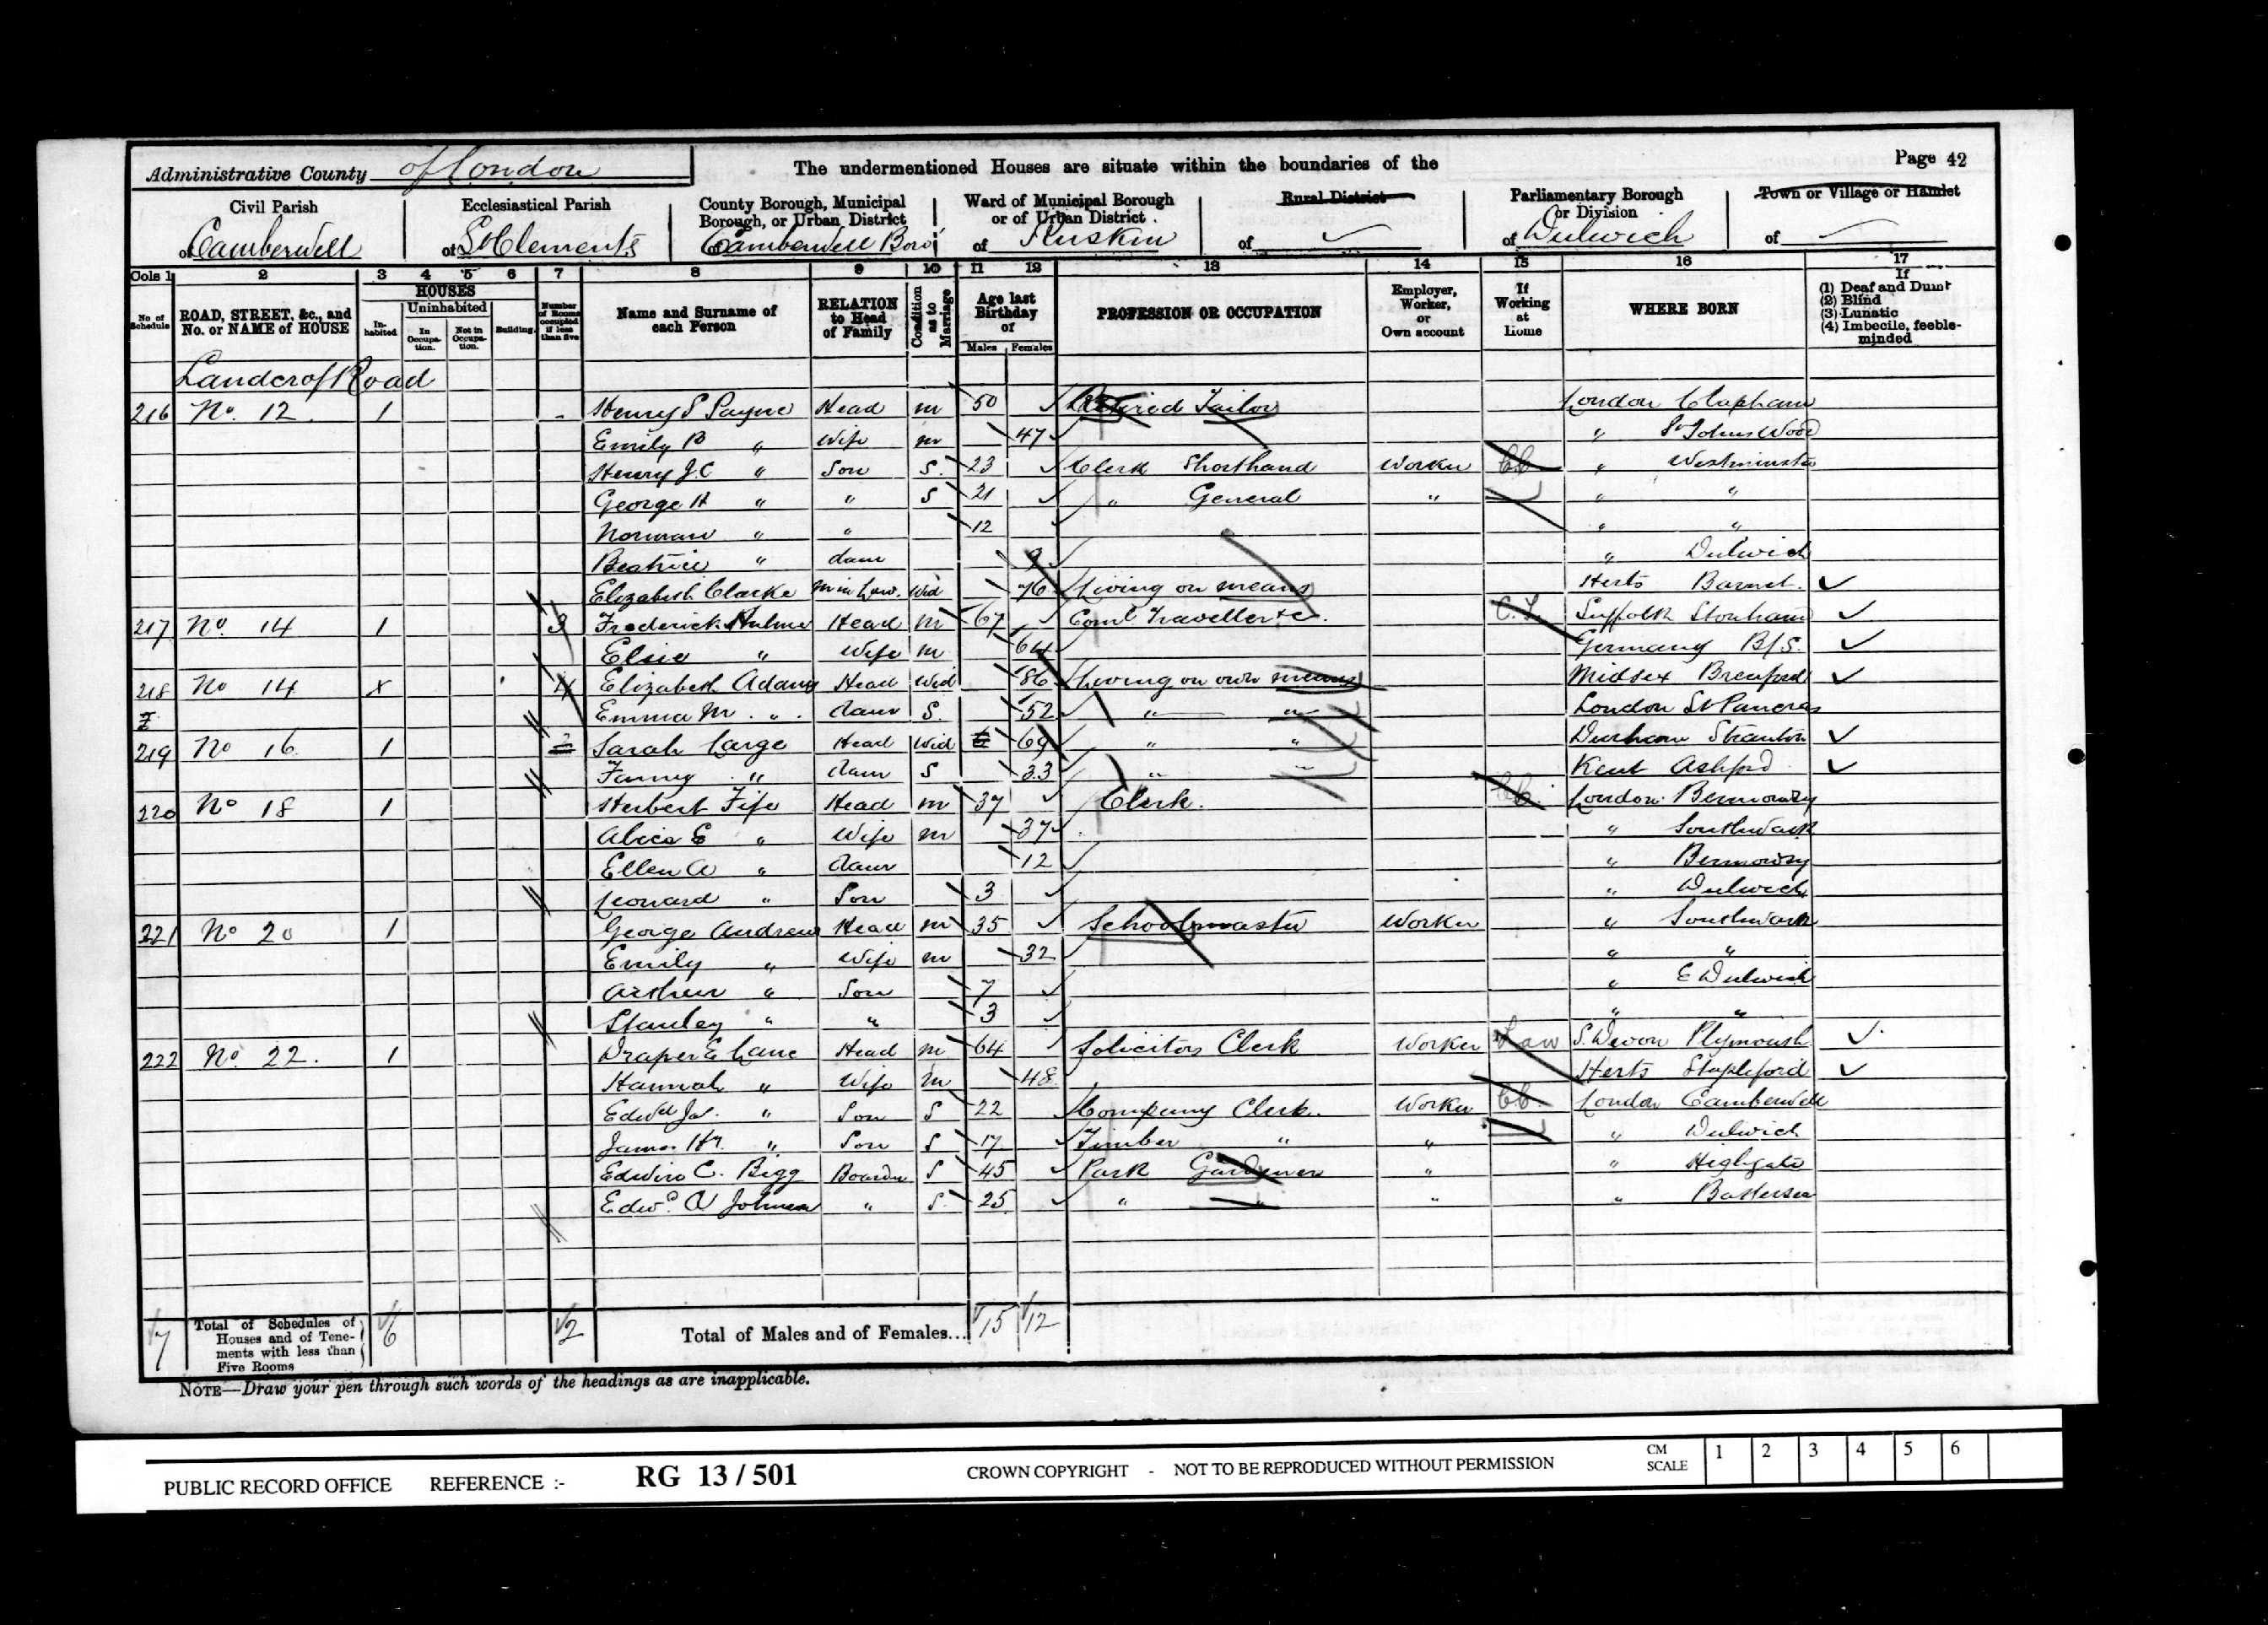 Administrative County of London The undermentioned Houses are situate within the boundaries of the Page 42
Civil Parish of Camberwell
Ecclesiastical Parish of St Clements
County Borough, Municipal Borough, or Urban District of Camberwell Boro'
Ward of Municipal Borough or of Urban District of Ruskin
Rural District of
Parliamentary Borough or Division of Dulwich
Town or Village or Hamlet of
Cols 1 2 3 4 5 6 7 8 9 10 11 12 13 14 15 16 17
No of Schedule
ROAD, STREET, &c., and No. or NAME of HOUSE
HOUSES
Inhabited
Uninhabited
In Occupation.
Not in Occupation.
Building.
Number of Rooms occupied if less than five
Name and Surname of each Person
RELATION to Head of Family
Condition as to Marriage
Age last Birthday of
Males Females
PROFESSION OR OCCUPATION
Employer, Worker, or Own account
If Working at Home
WHERE BORN
If
(1) Deaf and Dumb
(2) Blind
(3) Lunatic
(4) Imbecile, feeble-minded
Landcroft Road
216 No. 12 1 Henry S Payne Head m 50 Retired Tailor London Clapham
Emily B " Wife m 47 " St Johns Wood
Henry J.C " Son S. 23 Clerk Shorthand Worker " Westminster
George H " " S 21 " General " " "
Norman " " 12 " "
Beatrice " daur 9 " Dulwich
Elizabeth Clarke M in Law. Wid 76 Living on means Herts Barnet.
217 No. 14 1 3 Frederick Head m 67 Coml Traveller &c. Suffolk Stonham
Elsie " Wife m 64 Germany B/S.
218 No 14 x 4 Elizabeth Adams Head Wid 86 Living on own means Midsex Brentford
Emma M. " daur S. 52 " " London St Pancras
219 No 16 1 Sarah Large Head Wid 69 " " Durham Stranton
Fanny " daur S 33 " " Kent Ashford
220 No 18 1 Herbert Fife Head m 37 Clerk. London Bermondsy
Alice E " Wife m 37 " Southwark
Ellen A " daur 12 " Bermondsy
Leonard " Son 3 " Dulwich
221 No 20 1 George Andrews Head m 35 Schoolmaster Worker " Southwark
Emily " Wife m 32 " "
Arthur " Son 7 " E Dulwich
Stanley " " 3 " "
222 No. 22. 1 Draper E Lane Head m 64 Solicitors Clerk Worker Law S. Devon Plymouth
Hannah " Wife m 48 Herts Stapleford
Edwd Jas. " Son S 22 Company Clerk. Worker London Camberwell
James Hy. " Son S 17 Timber " " " Dulwich
Edwin C. Bigg Boarder S 45 Park Gardener " " Highgate
Edwd. A Johnson " S. 25 " " " " Battersea
7 Total of Schedules of Houses and of Tenements with less than Five Rooms 6 2 Total of Males and of Females... 15 12
NOTE—Draw your pen through such words of the headings as are inapplicable.
PUBLIC RECORD OFFICE REFERENCE :- RG 13 / 501 CROWN COPYRIGHT - NOT TO BE REPRODUCED WITHOUT PERMISSION CM SCALE 1 2 3 4 5 6